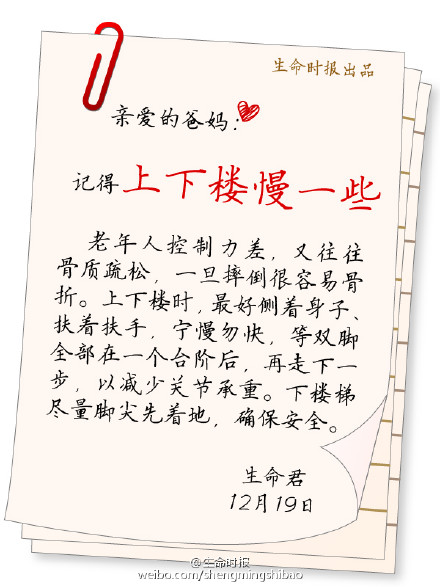 生命时报出品
亲爱的爸妈：
记得上下楼慢一些
老年人控制力差，又往往
骨质疏松，一旦摔倒很容易骨
折。上下楼时，最好侧着身子、
扶着扶手，宁慢勿快，等双脚
全部在一个台阶后，再走下一
步，以减少关节承重。下楼梯
尽量脚尖先着地，确保安全。
生命君
12月19日
@生命时报
weibo.com/shengmingshibao